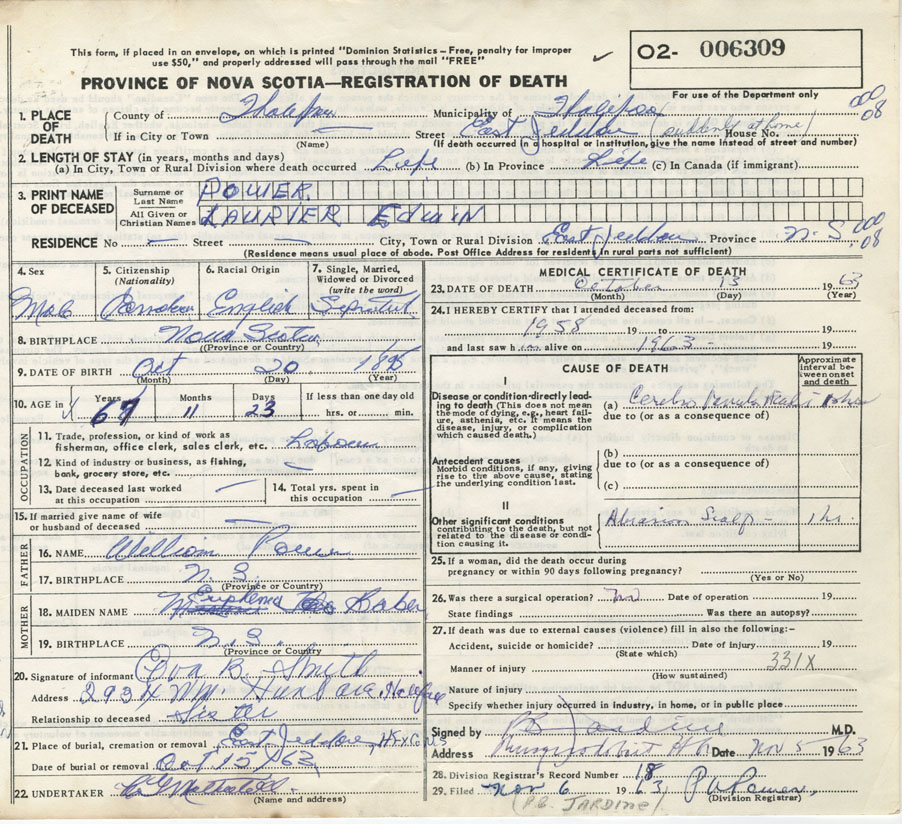 This form, if placed in an envelope, on which is printed "Dominion Statistics – Free, penalty for improper
use $50," and properly addressed will pass through the mail "FREE"
✓
O2- 006309
PROVINCE OF NOVA SCOTIA—REGISTRATION OF DEATH
For use of the Department only
1. PLACE OF DEATH
County of Halifax Municipality of Halifax 000 08
If in City or Town (Name) Street East Jeddore (suddenly at home) House No.
(If death occurred in a hospital or institution, give the name instead of street and number)
2. LENGTH OF STAY (in years, months and days)
(a) In City, Town or Rural Division where death occurred Life (b) In Province Life (c) In Canada (if immigrant)
3. PRINT NAME OF DECEASED
Surname or Last Name POWER
All Given or Christian Names LAURIER Edwin
RESIDENCE No — Street — City, Town or Rural Division East Jeddore Province N.S. 000 08
(Residence means usual place of abode. Post Office Address for resident in rural parts not sufficient)
4. Sex
Male
5. Citizenship (Nationality)
Canadian
6. Racial Origin
English
7. Single, Married, Widowed or Divorced (write the word)
8. BIRTHPLACE Nova Scotia
(Province or Country)
9. DATE OF BIRTH Oct 20 1895
(Month) (Day) (Year)
10. AGE in Years 67 Months 11 Days 23 If less than one day old hrs. or min.
OCCUPATION
11. Trade, profession, or kind of work as fisherman, office clerk, sales clerk, etc. Labourer
12. Kind of industry or business, as fishing, bank, grocery store, etc. —
13. Date deceased last worked at this occupation —
14. Total yrs. spent in this occupation —
15. If married give name of wife or husband of deceased —
FATHER
16. NAME William Power
17. BIRTHPLACE N.S.
(Province or Country)
MOTHER
18. MAIDEN NAME Euphenia Baker
19. BIRTHPLACE N.S.
(Province or Country)
20. Signature of informant B. Smyth
Address 2934 Hunt Ave. Halifax
Relationship to deceased Sister
21. Place of burial, cremation or removal East Jeddore, Hfx Co N S
Date of burial or removal Oct 15/63
22. UNDERTAKER
(Name and address)
MEDICAL CERTIFICATE OF DEATH
23. DATE OF DEATH October 13 1963
(Month) (Day) (Year)
24. I HEREBY CERTIFY that I attended deceased from:
1958 19 to 19
and last saw him alive on 1963 - 19
CAUSE OF DEATH
Approximate interval between onset and death
I
Disease or condition directly leading to death (This does not mean the mode of dying, e.g., heart failure, asthenia, etc. It means the disease, injury, or complication which caused death.)
(a) Cerebro
due to (or as a consequence of)
Antecedent causes
Morbid conditions, if any, giving rise to the above cause, stating the underlying condition last.
(b)
due to (or as a consequence of)
(c)
II
Other significant conditions contributing to the death, but not related to the disease or condition causing it.
Abrasion Scalp - 1 hr.
25. If a woman, did the death occur during pregnancy or within 90 days following pregnancy?
(Yes or No)
26. Was there a surgical operation? No Date of operation 19
State findings Was there an autopsy?
27. If death was due to external causes (violence) fill in also the following:–
Accident, suicide or homicide? Date of injury 19
(State which)
Manner of injury 331X
(How sustained)
Nature of injury
Specify whether injury occurred in industry, in home, or in public place
Signed by P B Jardine M.D.
Address Musquodoboit Hbr Date Nov 5 1963
28. Division Registrar's Record Number 18
29. Filed Nov 6 1963,
(Division Registrar)
(P.B. JARDINE)